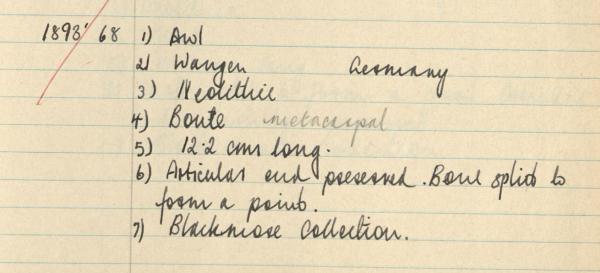 1893' 68 1) Awl
2) Wangen Germany
3) Neolithic
4) Bone metacarpal
5) 12.2 cms long.
6) Articular end preserved. Bone split to
form a point.
7) Blackmore Collection.